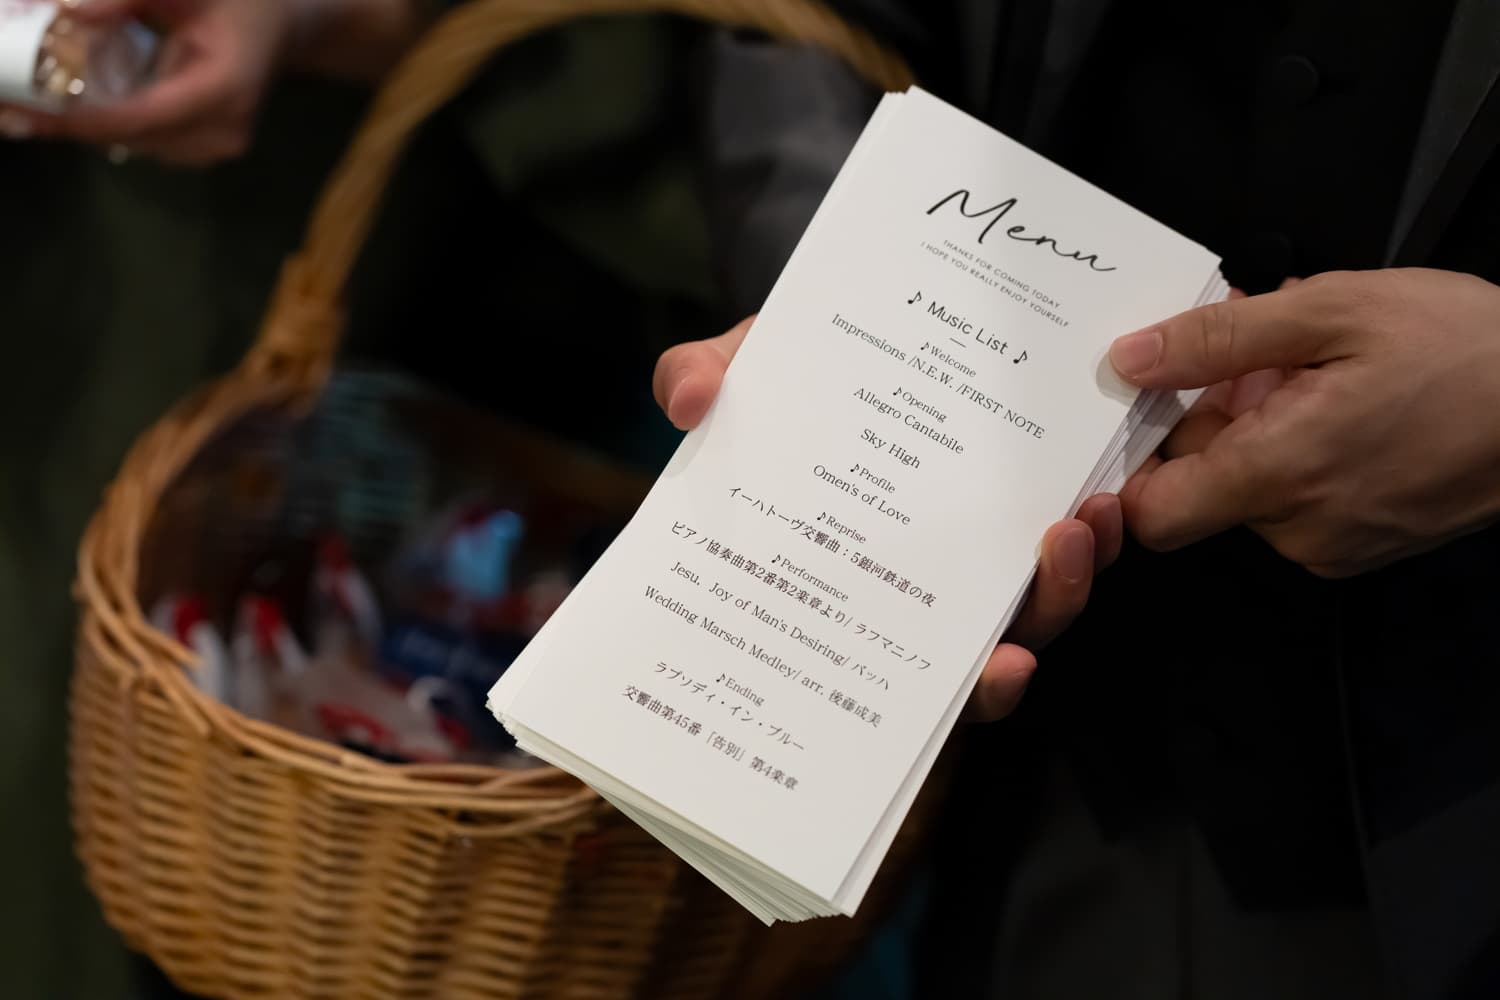 Menu
THANKS FOR COMING TODAY
I HOPE YOU REALLY ENJOY YOURSELF
♪ Music List ♪
♪Welcome
Impressions /N.E.W. /FIRST NOTE
♪Opening
Allegro Cantabile
Sky High
♪Profile
Omen's of Love
♪Reprise
イーハトーヴ交響曲：5銀河鉄道の夜
♪Performance
ピアノ協奏曲第2番第2楽章より/ ラフマニノフ
Jesu, Joy of Man's Desiring/ バッハ
Wedding Marsch Medley/ arr. 後藤成美
♪Ending
ラプソディ・イン・ブルー
交響曲第45番「告別」第4楽章